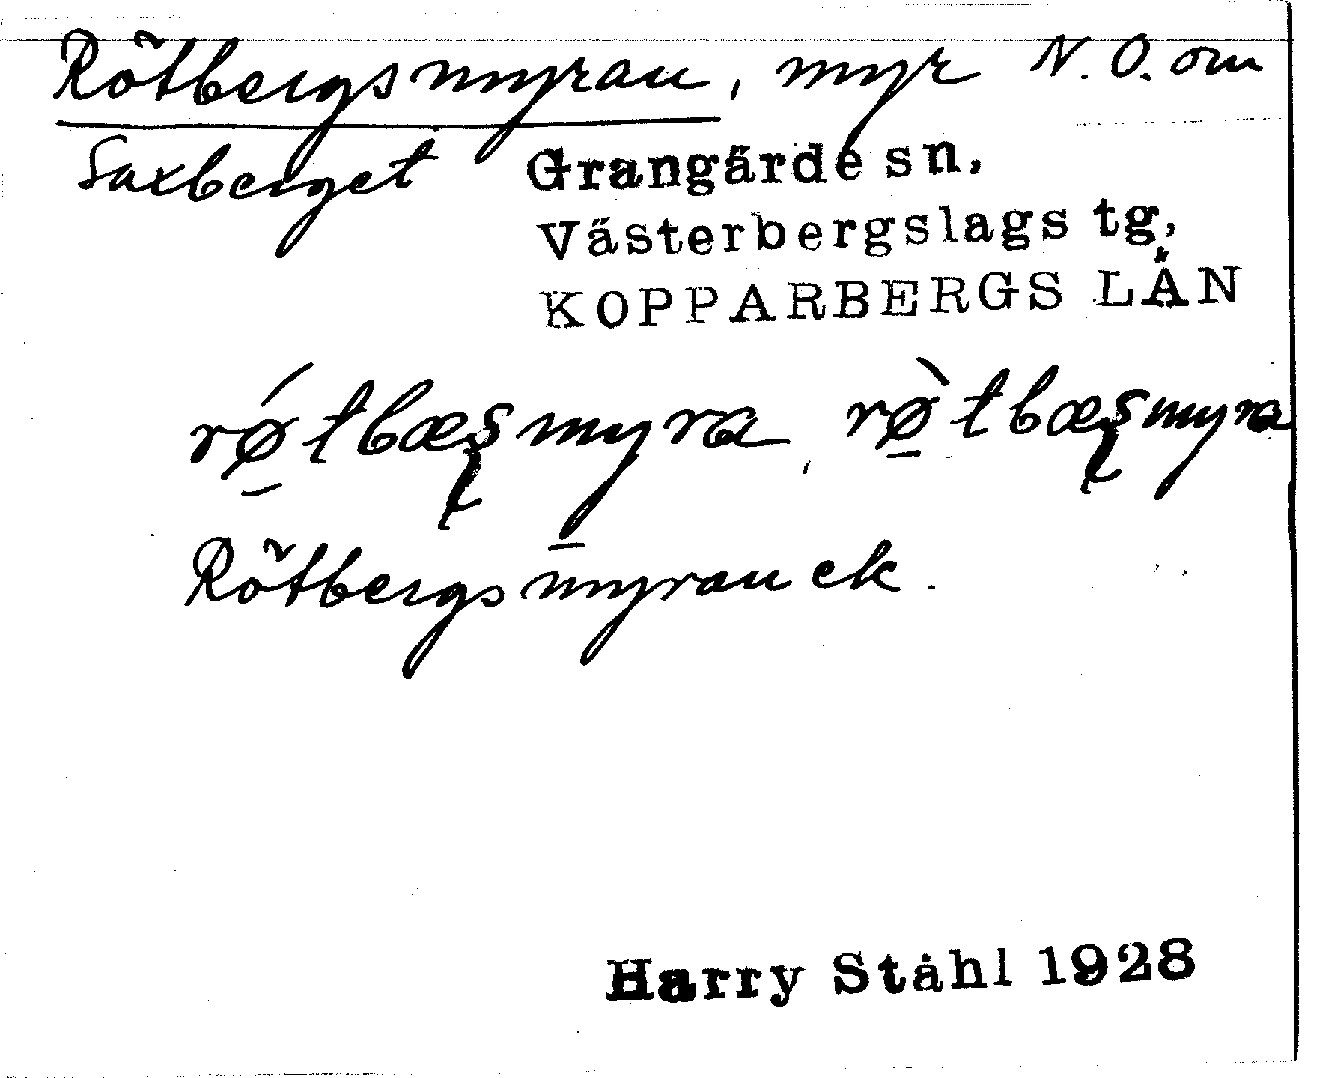 Rötbergsmyran, myr N.O. om
Saxberget Grangärde sn,
Västerbergslags tg,
KOPPARBERGS LÄN
rǿtbæşmyra, rø̀tbæşmyra
Rötbergsmyran ek.
Harry Ståhl 1928